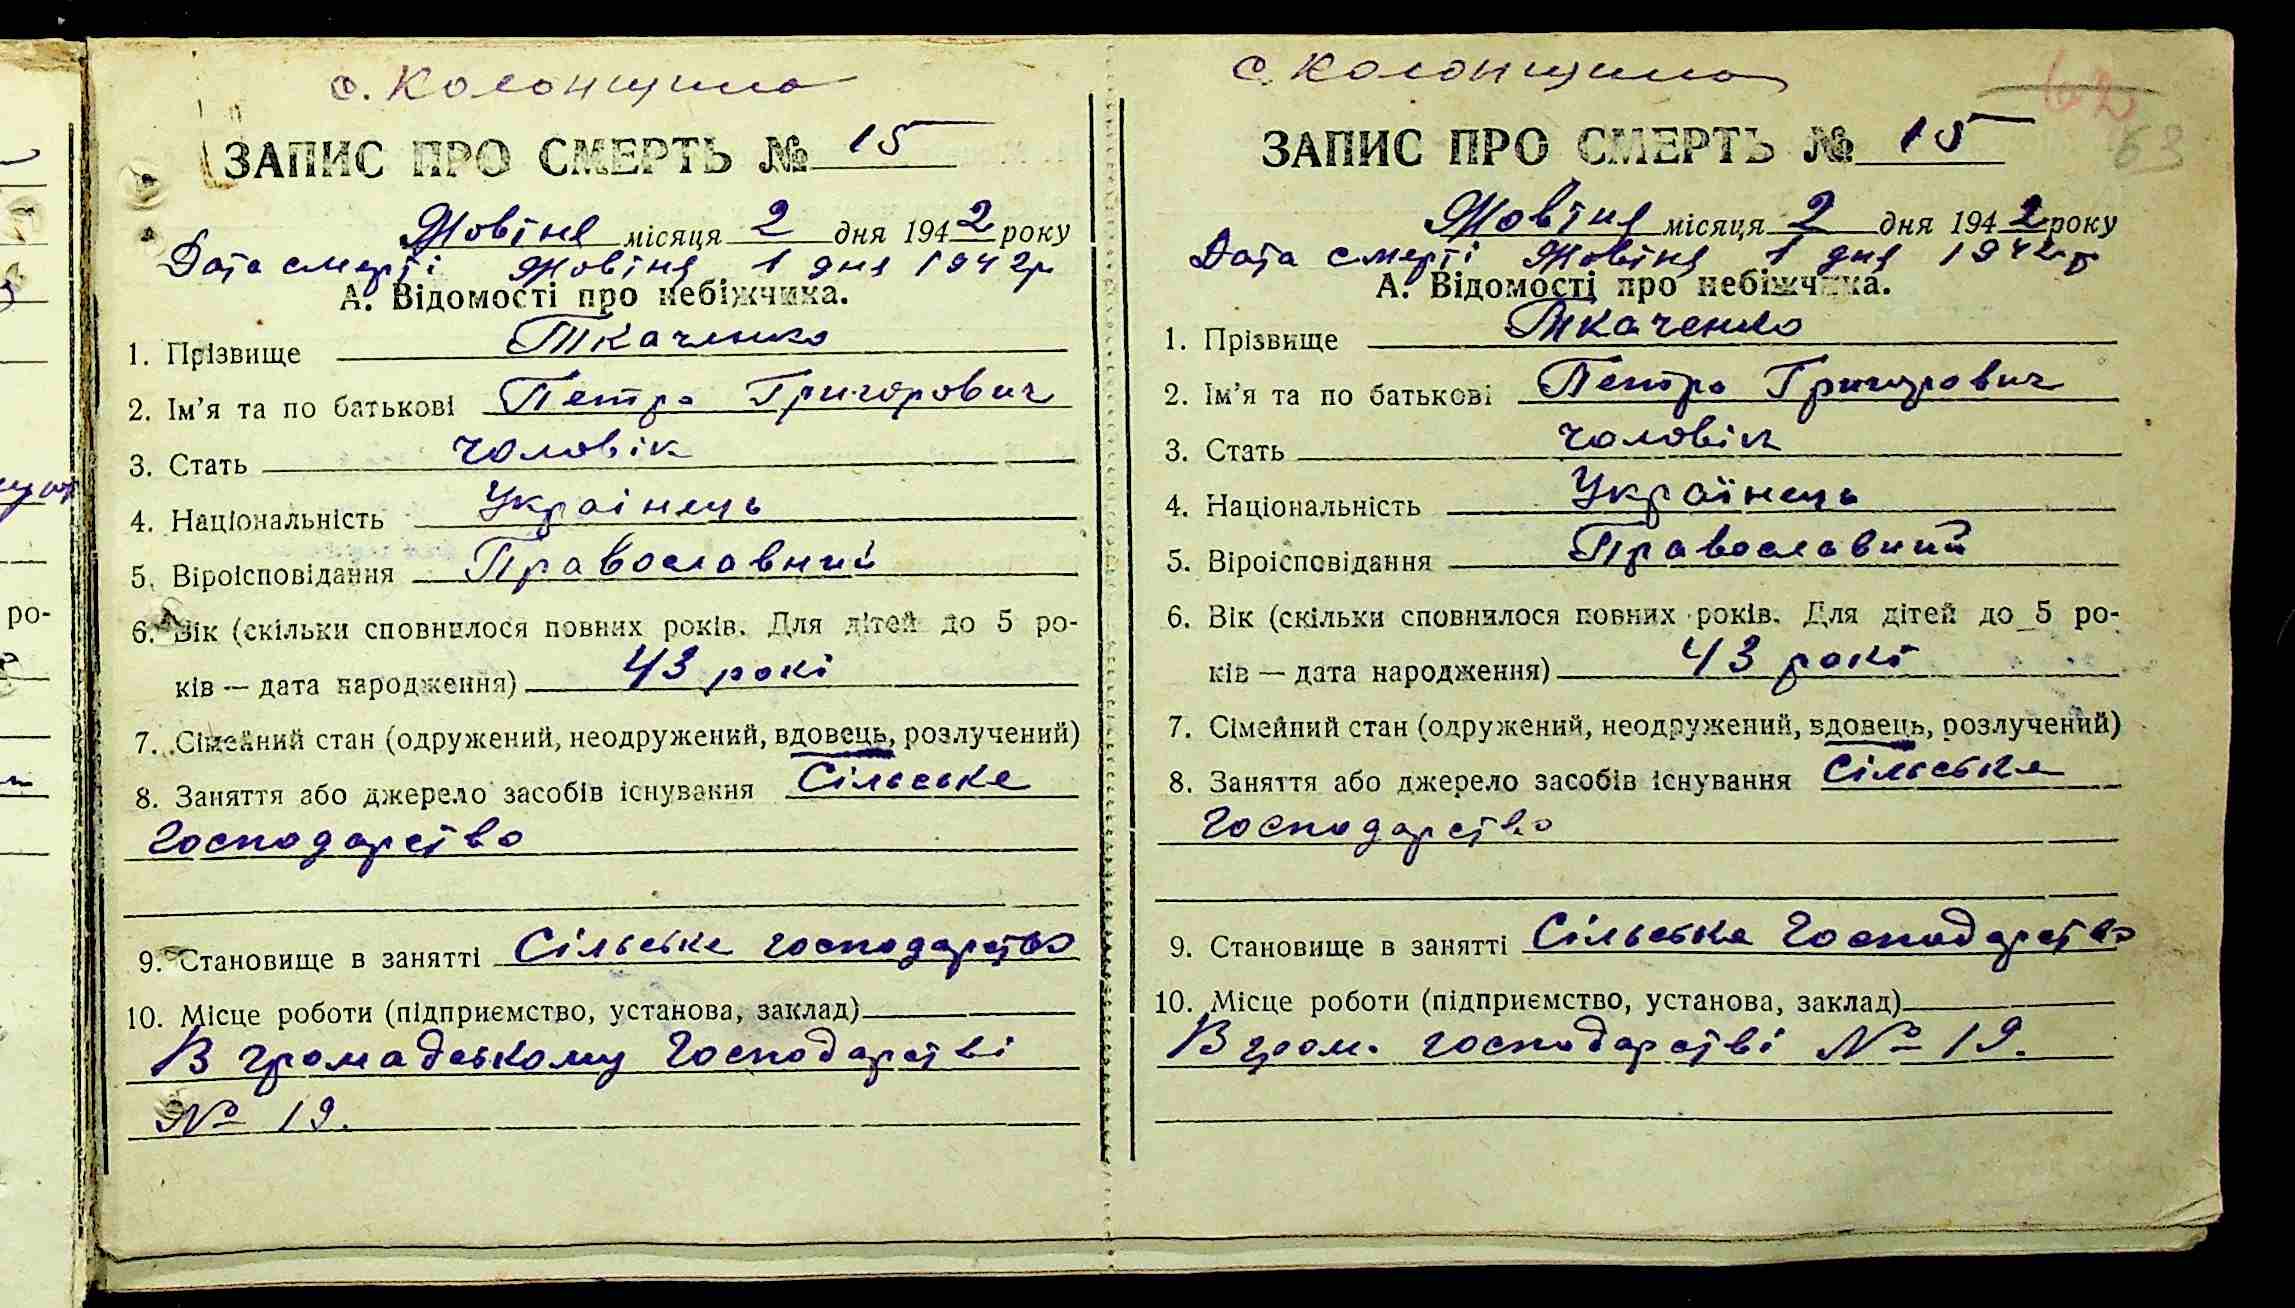 с. Колонщина
ЗАПИС ПРО СМЕРТЬ № 15
Жовтня місяця 2 дня 1942 року
Дата смерті Жовтня 1 дня 1942 р
А. Відомості про небіжчика.
1. Прізвище Ткаченко
2. Ім'я та по батькові Петро Григорович
3. Стать чоловік
4. Національність Українець
5. Віроісповідання Православний
6. Вік (скільки сповнилося повних років. Для дітей до 5 ро-
ків — дата народження) 43 рокі
7. Сімейний стан (одружений, неодружений, вдовець, розлучений)
8. Заняття або джерело засобів існування Сільське
господарство
9. Становище в занятті Сільське господарство
10. Місце роботи (підприємство, установа, заклад)
В громадському господарстві
№ 19.
с. Колонщина
62
63
ЗАПИС ПРО СМЕРТЬ № 15
Жовтня місяця 2 дня 1942 року
Дата смерті Жовтня 1 дня 1942 р
А. Відомості про небіжчика.
1. Прізвище Ткаченко
2. Ім'я та по батькові Петро Григорович
3. Стать чоловік
4. Національність Українець
5. Віроісповідання Православний
6. Вік (скільки сповнилося повних років. Для дітей до 5 ро-
ків — дата народження) 43 рокі
7. Сімейний стан (одружений, неодружений, вдовець, розлучений)
8. Заняття або джерело засобів існування Сільське
господарство
9. Становище в занятті Сільське господарство
10. Місце роботи (підприємство, установа, заклад)
В гром. господарстві № 19.
ро-